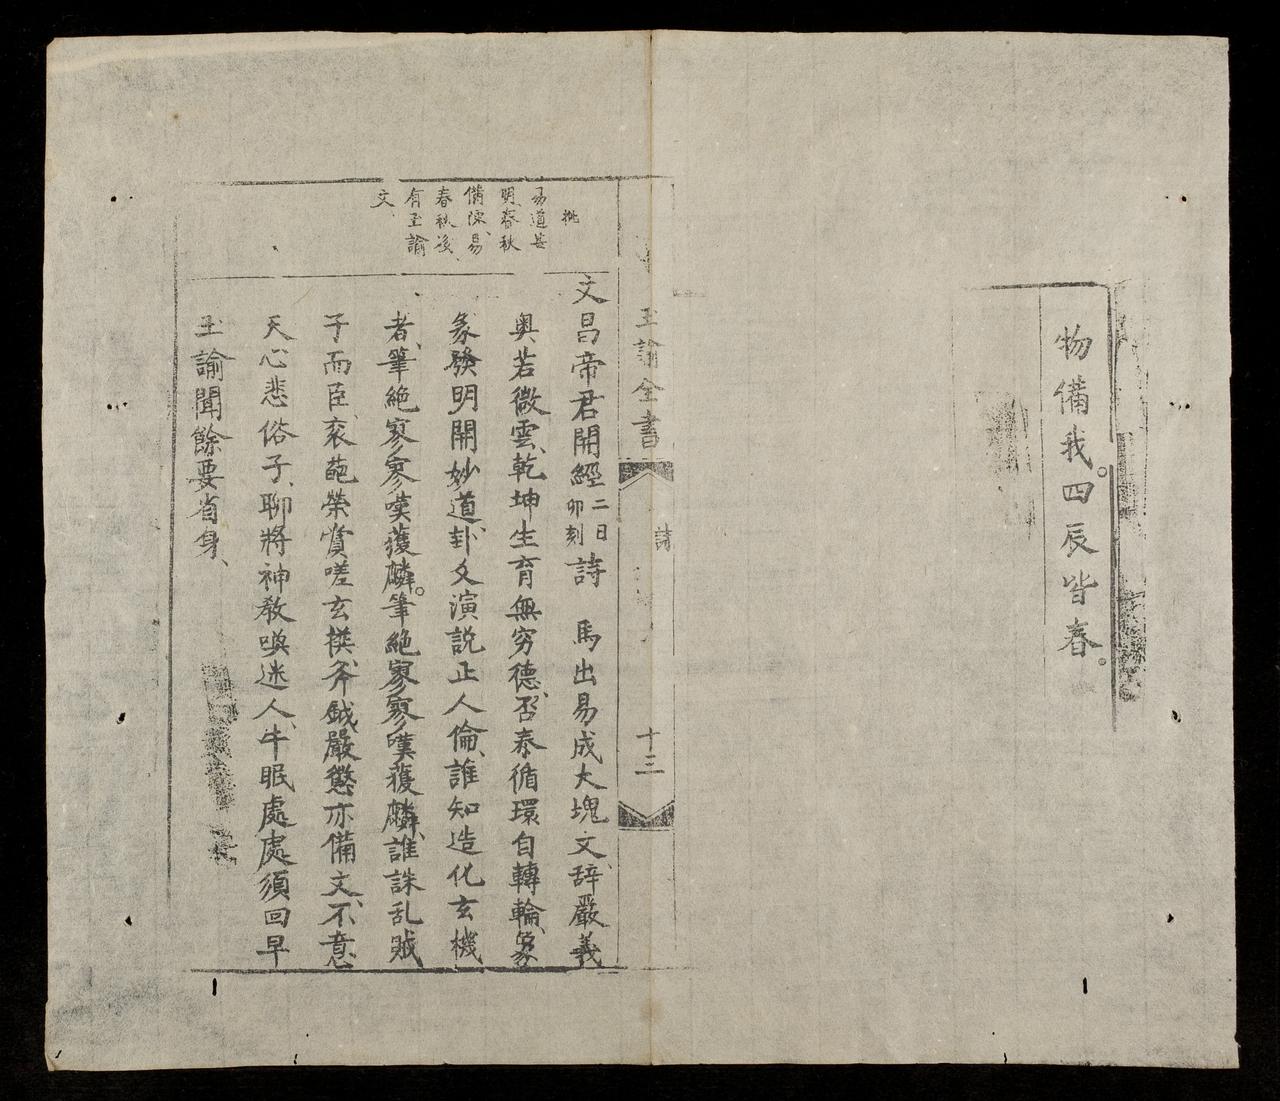 物備我。四辰皆春。
玉諭全書
詩
十三
批
易道甚
明、春秋
備陳、易
春秋後、
有玉諭
文、
文昌帝君開經二日卯刻詩 馬出易成大塊文、辞嚴義
奥若微雲、乾坤生育無穷德、否泰循環自轉輪、象
彖發明開妙道、卦爻演説正人倫、誰知造化玄機
者、筆絶寥寥嘆獲麟。筆絶寥寥嘆獲麟、誰誅乱賊
子而臣、衮葩榮賞嗟玄模、斧鉞嚴懲亦備文、不意
天心悲俗子、聊將神教喚迷人、牛眠處處須回早
玉諭聞餘要省身、